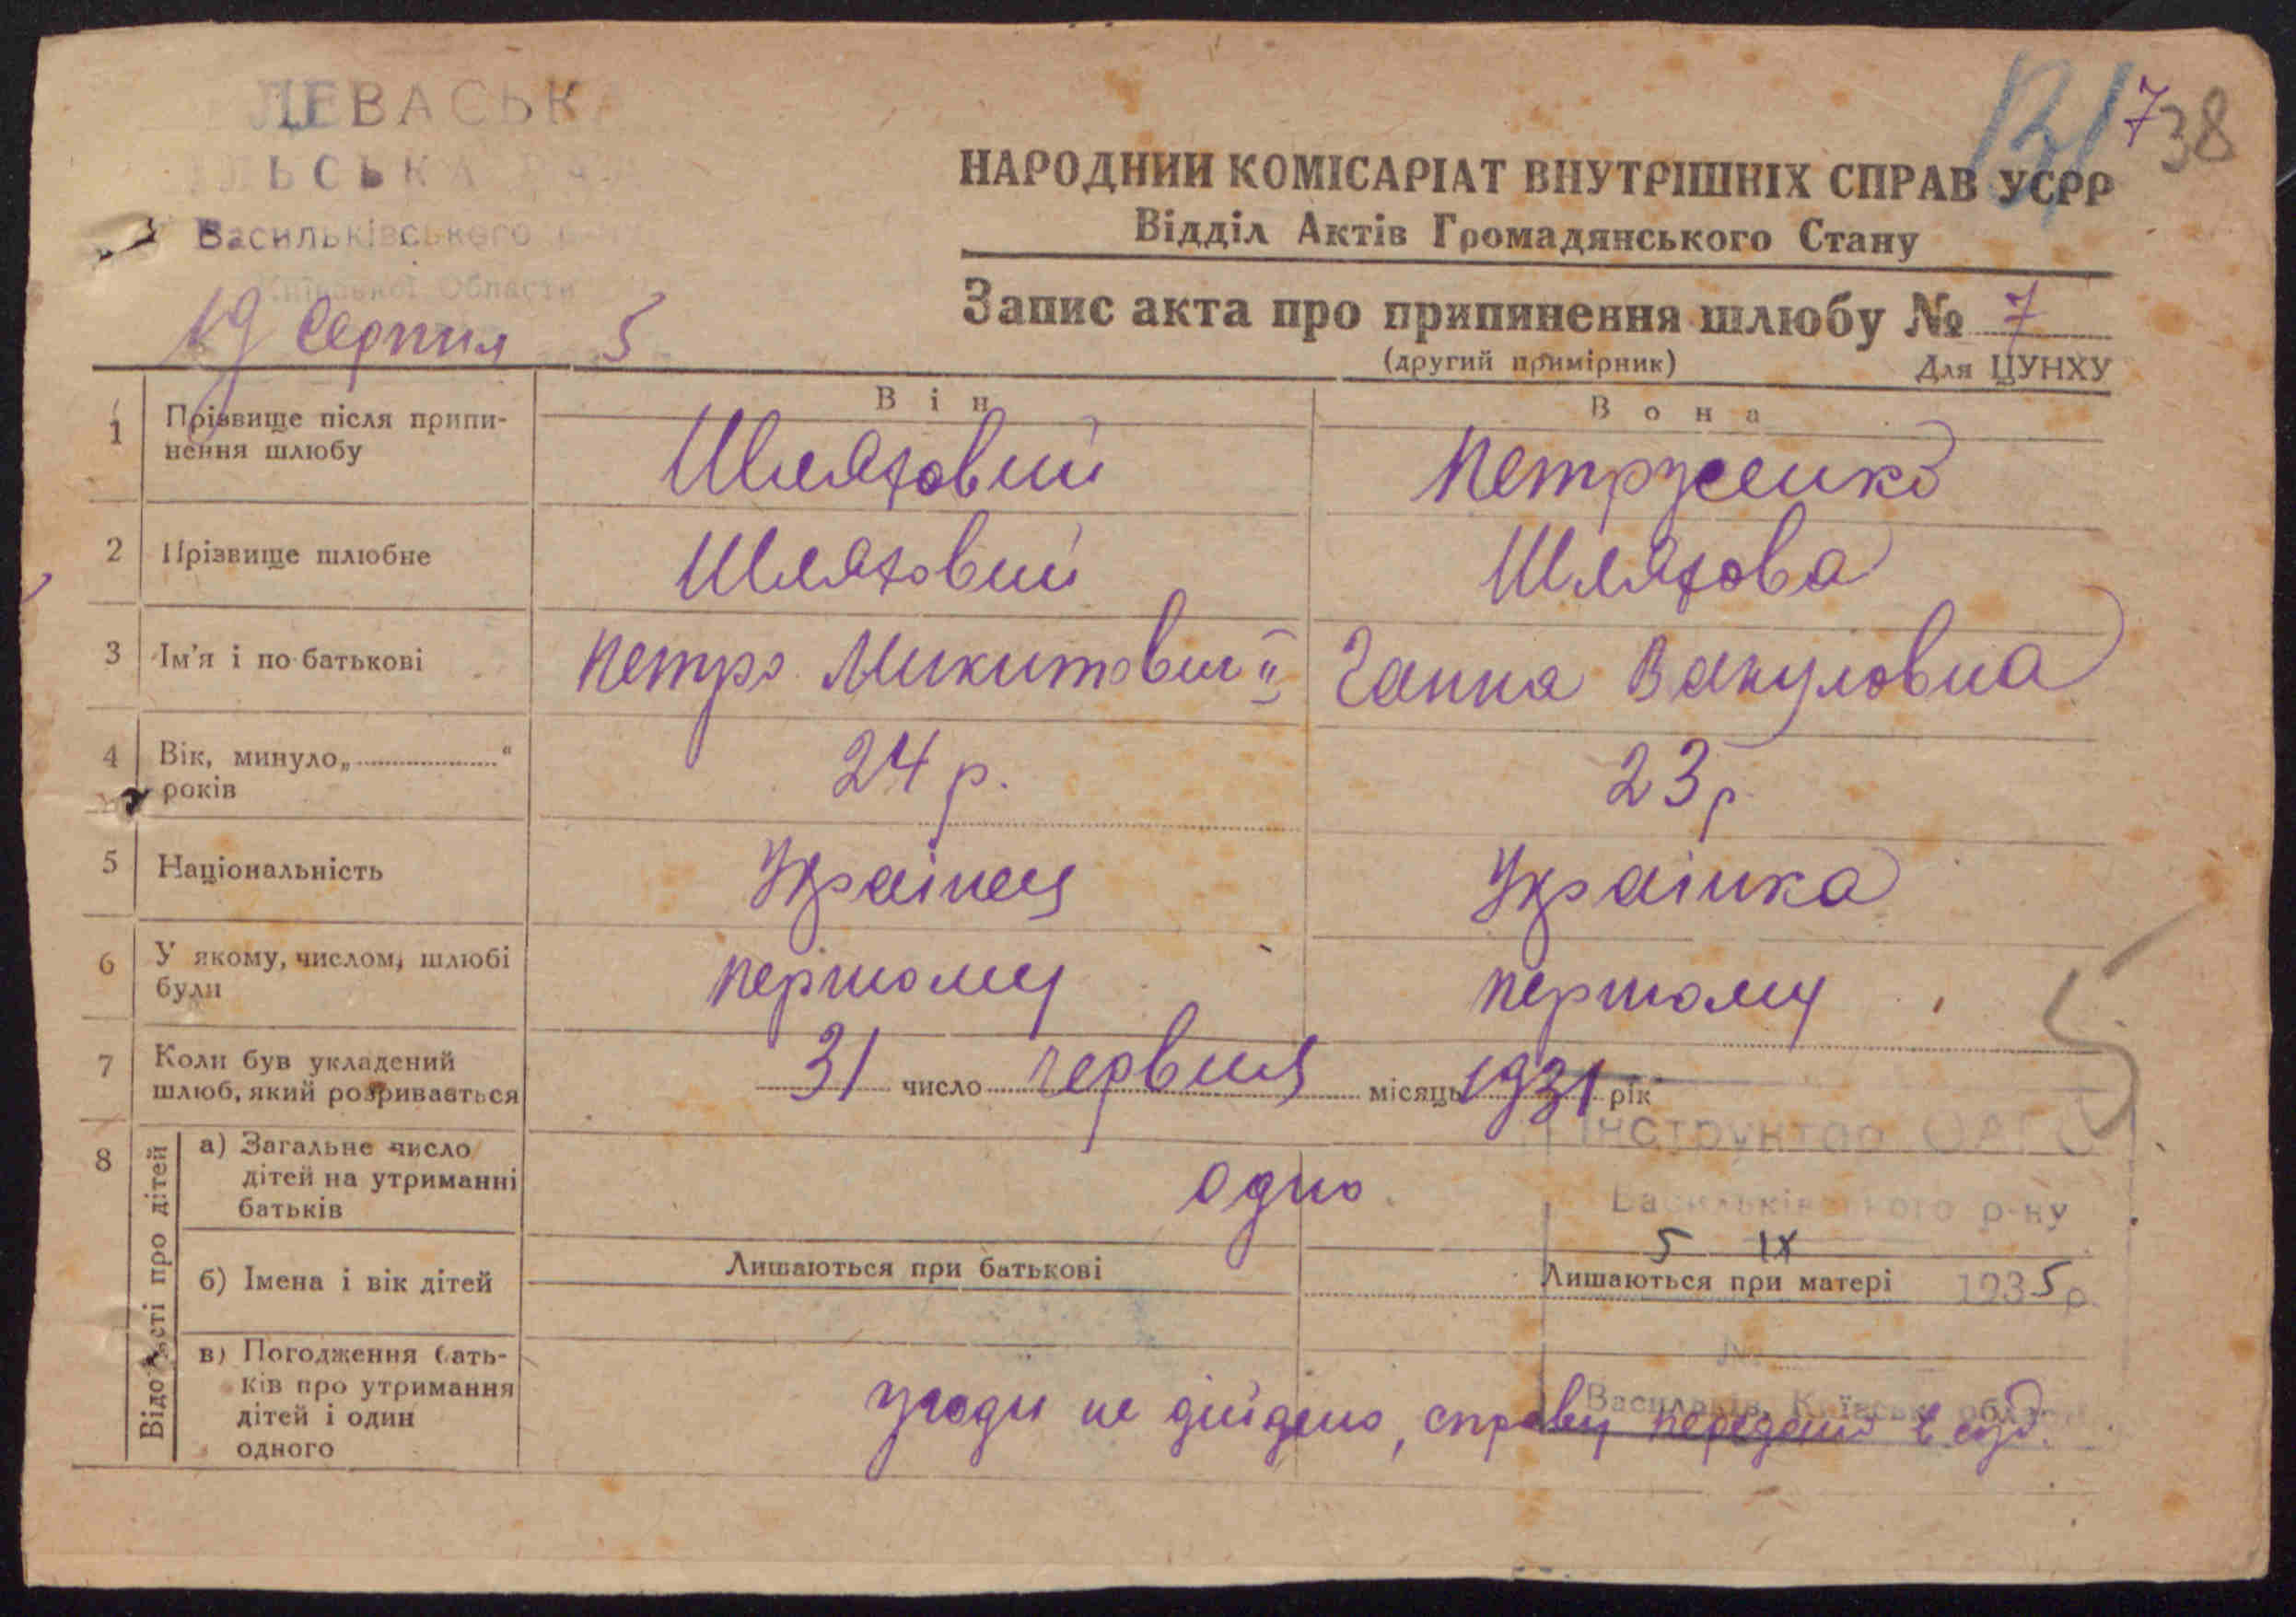 ЛЕВАСЬКА
ЛЬСЬКА РАДА
Васильківського
Київської Области
19 Серпня 5
121 7 38
НАРОДНИЙ КОМІСАРІАТ ВНУТРІШНІХ СПРАВ УСРР
Відділ Актів Громадянського Стану
Запис акта про припинення шлюбу № 7
(другий примірник) Для ЦУНХУ
Він Вона
1 Прізвище після припи-
нення шлюбу
Шляховий Петрусенко
2 Прізвище шлюбне Шляховий Шляхова
3 Ім'я і по батькові Петро Микитович Ганна Вакуловна
4 Вік, минуло „ “
років
24 р. 23 р
5 Національність Українець Українка
6 У якому, числом, шлюбі
були
першому першому
7 Коли був укладений
шлюб, який розривається
31 число червня місяць 1931 рік
5
Інструктор ОАГС
Васильківського р-ну
5 IX
1935 р.
№
Васильків, Київськ. обл.
8 Відомості про дітей
а) Загальне число
дітей на утриманні
батьків
одно
б) Імена і вік дітей
Лишаються при батькові Лишаються при матері
в) Погодження бать-
ків про утримання
дітей і один
одного
угоди не дійдено, справу передано в суд.